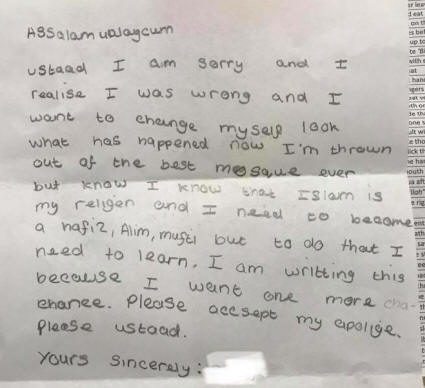 Assalam ualaycum
ustaad I am sorry and I
realise I was wrong and I
want to change myself look
what has happened now I'm thrown
out of the best mosque ever
but know I know that Islam is
my religen and I need to become
a hafiz, Alim, mufti but to do that I
need to learn. I am writting this
because I want one more cha-
chance. Please accsept my apolige.
Please ustaad.
Yours sincerely: